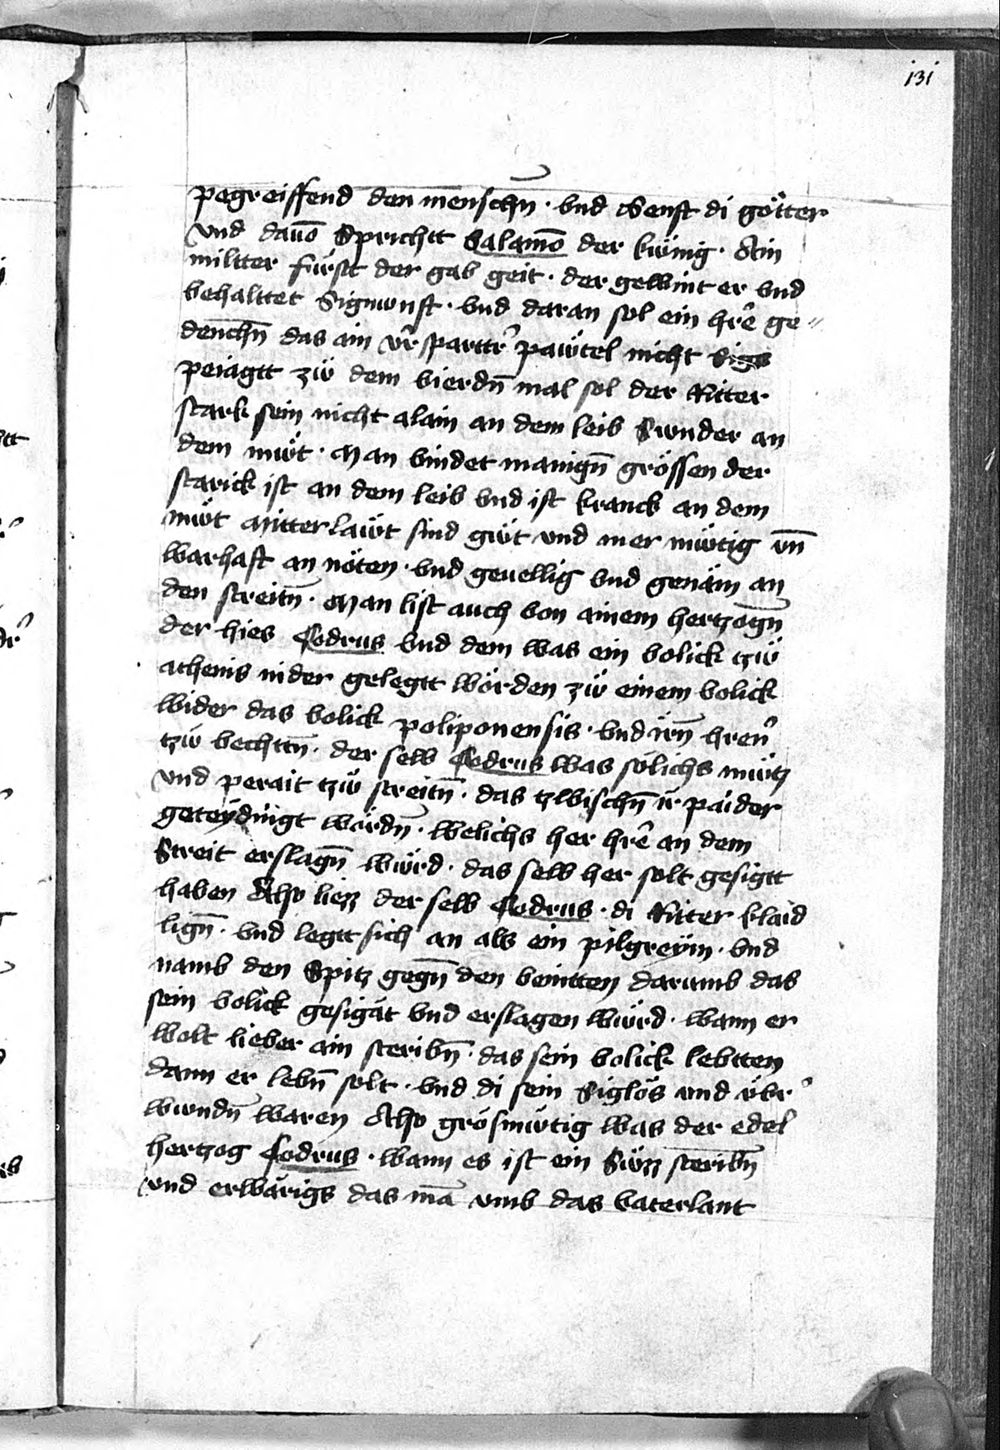 131
pegreiffend den menschn̄ · vnd Senft di götter
vnd dauō Sprichtt Salamō der kwnig · Ain
miltter fürst der gab geit · der gewint er vnd
behalttet Signunft · vnd daran sol ein hrē ge„
denchn̄ das ain vr̄sparttr̓ pawtel nicht
peiagtt zẅ dem vierdn̄ mal sol der Ritter
stark sein nicht alain an dem leib Swnder an
dem mẅt · Man vindet manign̄ grössen der
starick ist an dem leib vnd ist kranck an dem
mẅt Mitter lawt sind gẅt vnd mer mẅtig vn̄
warhaft an nöten · vnd geuellig vnd genäm an
den streitn̄ · Man list auch von ainem hertzogn̄
der hies Codrus vnd dem was ein volick tzẅ
athenis nider gelegtt wörden zẅ einem volick
wider das volick poliponensis · vnd irn̄ hren̓
tzẅ vechttn̄ · der selb Codrus was sölichs mẅtz
vnd perait tzẅ streitn̄ · das tzwischn̄ ir paider
geteydingt würdn̄ · welichs her hrē an dem
Streit erslagn̄ wẅrd · das selb her solt gesigtt
haben Also liezz der selb Codrus · di Ritter klaid
lign̄ · vnd legtt sich an als ein pilgreÿm · vnd
namb den Spitz gegn̄ den veintten darumb das
sein volick gesigät vnd erslagen wẅrd · wann er
wolt lieber ain steribn̄ · das sein volick lebtten
dann er lebn̄ solt · vnd di sein Siglös vnd v̈br̓
wundn̄ waren Also grösmẅtig was der edel
hertzog Codrus · wann es ist ein Süzz steribn̄
vnd erwärigs das mā vmb das vaterlant